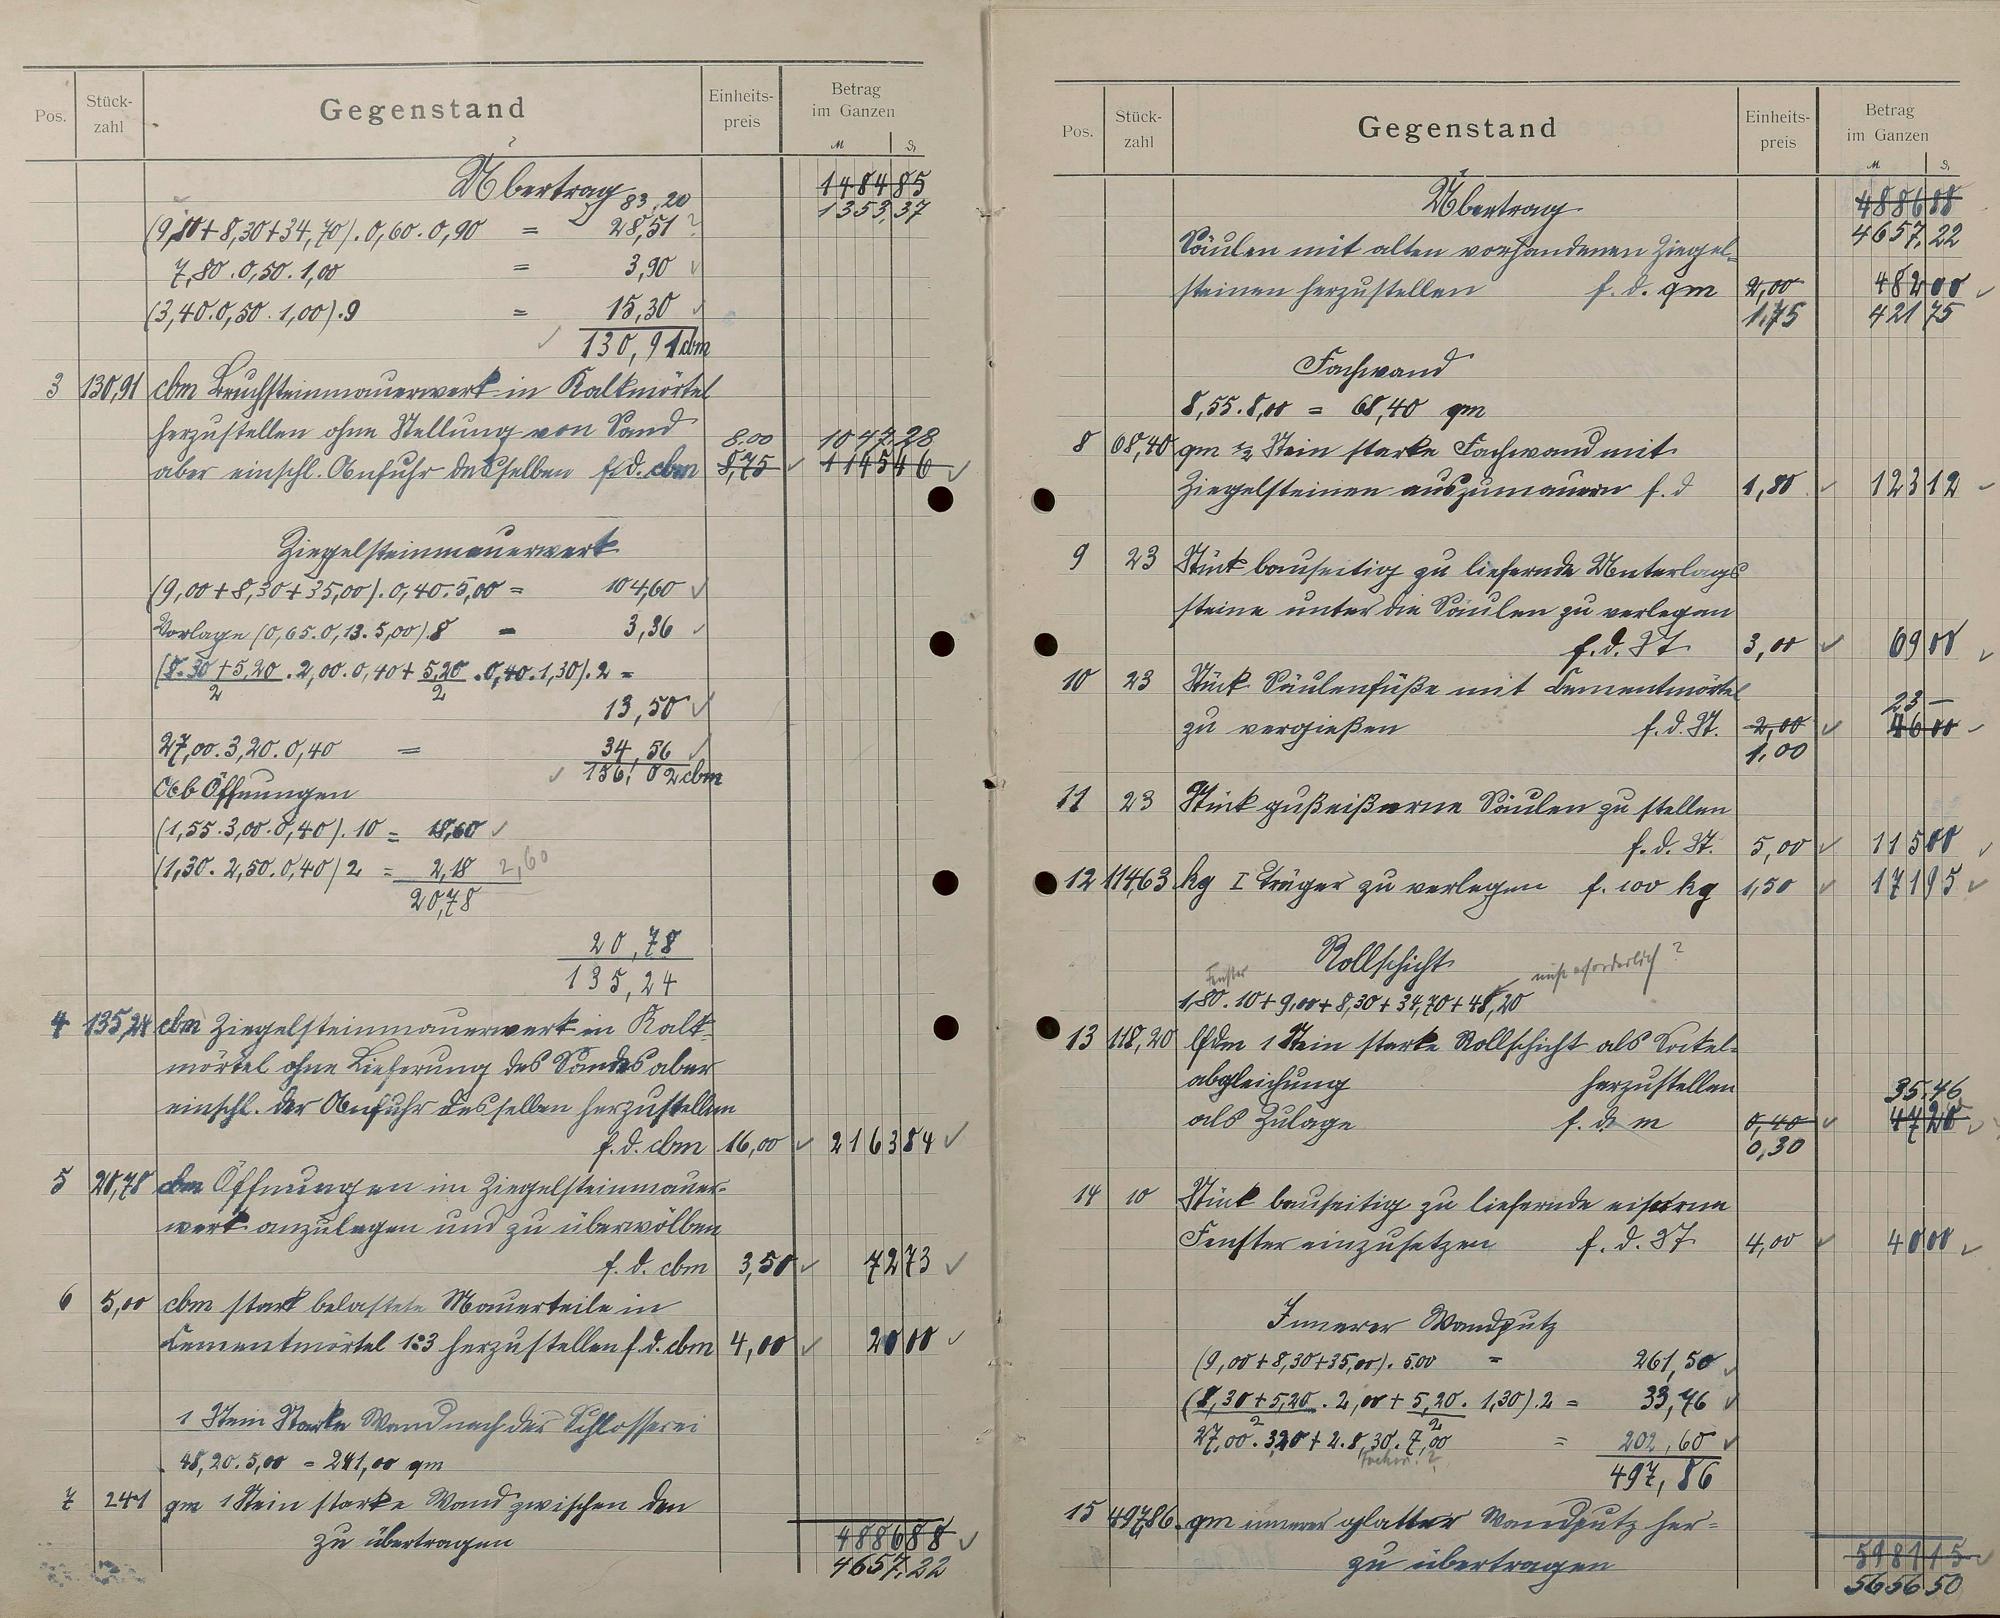 Pos. Stück-zahl Gegenstand Einheits-preis Betrag im Ganzen
M ₰
Übertrag 1484 85
83,20 1353,37
(9,80+8,30+34,70).0,60.0,90 = 28,51 ?
7,80.0,50.1,00 = 3,90 ✓
(3,40.0,50.1,00).9 = 15,30 ✓
✓ 130,91 cbm
3 130,91 cbm Bruchsteinmauerwerk in Kalkmörtel
herzustellen ohne Stellung von Sand 8.00 1047 28
aber einschl. Anfuhr desselben f.d. cbm 8,75 ✓ 1145 46 ✓
Ziegelsteinmauerwerk
(9,00+8,30+35,00).0,40.5,00 = 104,60 ✓
Vorlage (0,65.0,13.5,00).8 = 3,36 ✓
(8.30+5,20/2 .2,00.0,40+ 5,20/2 .0,40.1,30).2 =
13,50 ✓
27,00.3,20.0,40 = 34,56 ✓
✓ 156,02 cbm
Ab Öffnungen
(1,55.3,00.0,40).10 = 18,60 ✓
(1,30.2,50.0,40)2 = 2,18 2,60
20,78
20,78
135,24
4 135,24 cbm Ziegelsteinmauerwerk in Kalk-
mörtel ohne Lieferung des Sandes aber
einschl. der Anfuhr desselben herzustellen
f.d. cbm 16,00 ✓ 2163 84 ✓
5 20,78 cbm Öffnungen im Ziegelsteinmauer-
werk anzulegen und zu überwölben
f.d. cbm 3,50 ✓ 72 73 ✓
6 5,00 cbm stark belastete Mauerteile in
Cementmörtel 1:3 herzustellen f.d. cbm 4,00 ✓ 20 00 ✓
1 Stein Starke Wand nach der Schlosserei
48,20.5,00 = 241,00 qm
7 241 qm 1 Stein starke Wand zwischen den
zu übertragen 4886 88 ✓
4657,22
Pos. Stück-zahl Gegenstand Einheits-preis Betrag im Ganzen
M ₰
Übertrag 4886 88
4657,22
Säulen mit alten vorhandenen Ziegel-
steinen herzustellen f.d. qm 2,00 482 00 ✓
1,75 421 75
Fachwand
8,55.8,00 = 68,40 qm
8 68,40 qm ½ Stein starke Fachwand mit
Ziegelsteinen auszumauern f.d 1,80 ✓ 123 12 ✓
9 23 Stück bauseitig zu liefernde Unterlags
steine unter die Säulen zu verlegen
f.d. St. 3,00 ✓ 69 00 ✓
10 23 Stück Säulenfüße mit Cementmörtel 23 –
zu vergießen f.d. St. 2,00 ✓ 46 00 ✓
1,00
11 23 Stück gußeißerne Säulen zu stellen
f.d. St. 5,00 ✓ 115 00 ✓
12 11463 kg I Träger zu verlegen f. 100 kg 1,50 ✓ 171 95 ✓
Rollschicht nicht erforderlich?
Fenster
1,80.10+9,00+8,30+34,70+48,20
13 118,20 lfdm 1 Stein starke Rollschicht als Sockel-
abgleichung herzustellen 35,46
als Zulage f.d. m 0,40 ✓ 47 28 ✓
0,30
14 10 Stück bauseitig zu liefernde eiserne
Fenster einzusetzen f.d. St 4,00 ✓ 40 00 ✓
Innerer Wandputz
(9,00+8,30+35,00).5.00 = 261,50 ✓
(8,30+5,20/2 .2,00+ 5,20/2 .1,30).2 = 33,76 ✓
27,00.3,20+2.8,30.7,00 = 202,60 ✓
497,86
15 497,86 qm innerer glatter Wandputz her-
zu übertragen 5981 15 ✓
5656 50